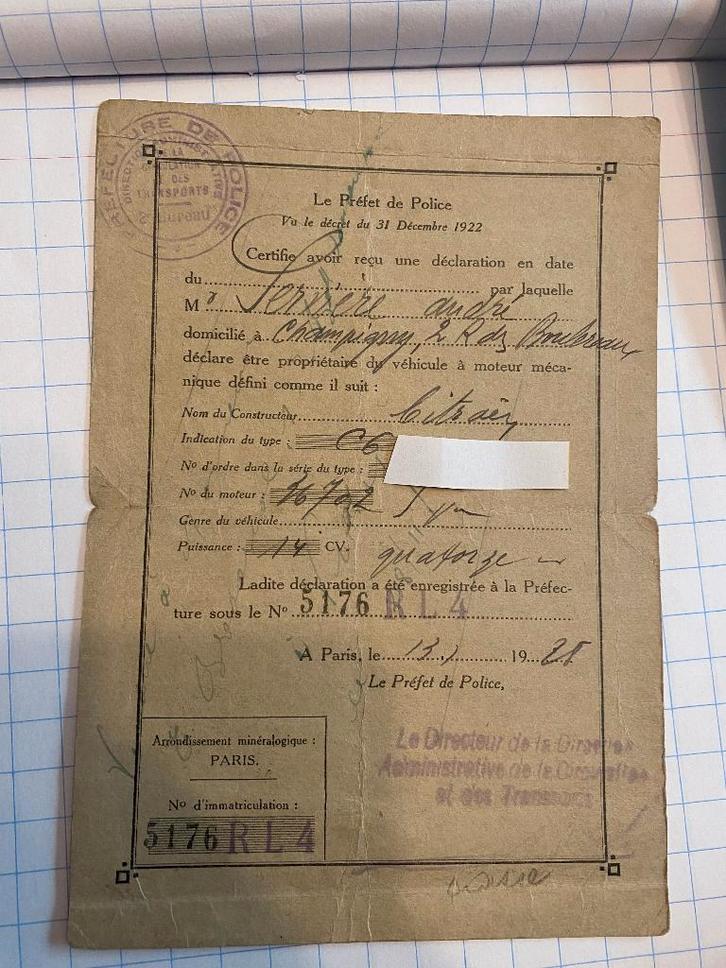 PREFECTURE DE POLICE
DIRECTION ADMINISTRATIVE
DE LA
CIRCULATION
ET DES
TRANSPORTS
2 Bureau
Le Préfet de Police
Vu le décret du 31 Décembre 1922
Certifie avoir reçu une déclaration en date
du par laquelle
Mr Servière andré
domicilié à Champigny, 2 R ds
déclare être propriétaire du véhicule à moteur méca-
nique défini comme il suit :
Nom du Constructeur Citroën
Indication du type : C6
No d'ordre dans la série du type :
No du moteur : 16702
Genre du véhicule
Puissance : 14 CV. quatorze
Ladite déclaration a été enregistrée à la Préfec-
ture sous le No 5176 RL4
A Paris, le 13 19
Le Préfet de Police,
Arrondissement minéralogique :
PARIS.
Le Directeur de la Direction
Administrative de la Circulation
et des Transports
No d'immatriculation :
5176 RL4